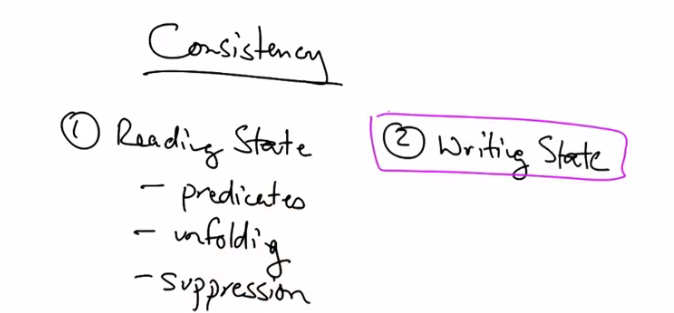 Consistency
① Reading State
- predicates
- unfolding
- suppression
② Writing State